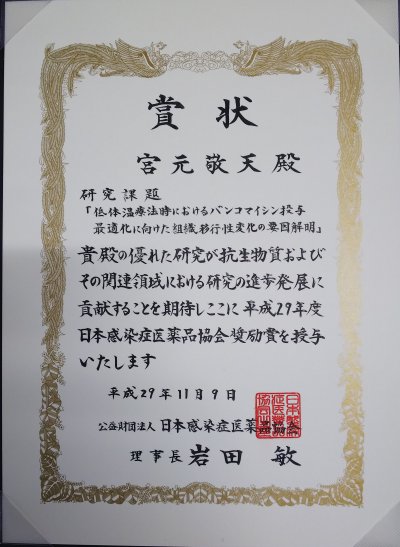 賞状
宮元敬天殿
研究課題
「低体温療法時におけるバンコマイシン投与
最適化に向けた組織移行性変化の要因解明」
貴殿の優れた研究が抗生物質および
その関連領域における研究の進歩発展に
貢献することを期待しここに平成29年度
日本感染症医薬品協会奨励賞を授与
いたします
平成29年11月9日
公益財団法人 日本感染症医薬品協会
理事長 岩田 敏